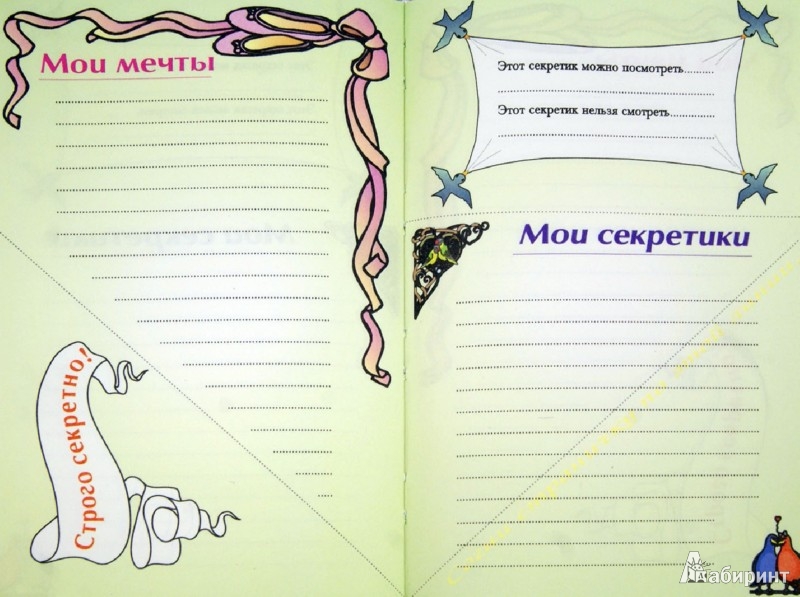 Мои мечты
Строго секретно!
Этот секретик можно посмотреть..........
Этот секретик нельзя смотреть...............
Мои секретики
Лабиринт